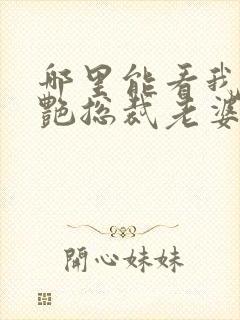 哪里能看我
艷总裁老婆
開心妹妹